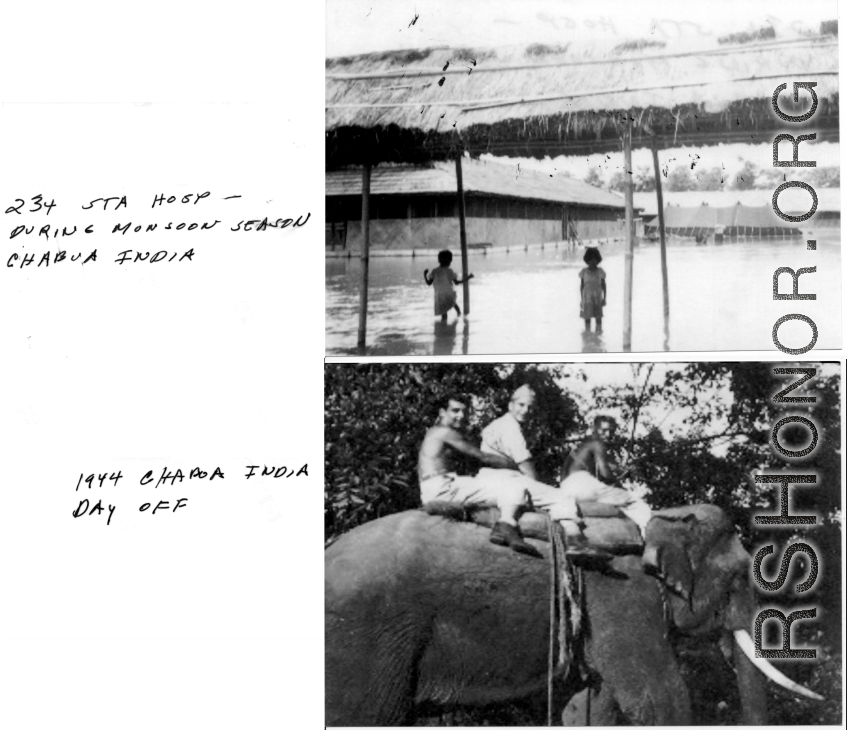 234 STA HOSP —
DURING MONSOON SEASON
CHABUA INDIA
1944 CHABUA INDIA
DAY OFF
RSHONOR.ORG